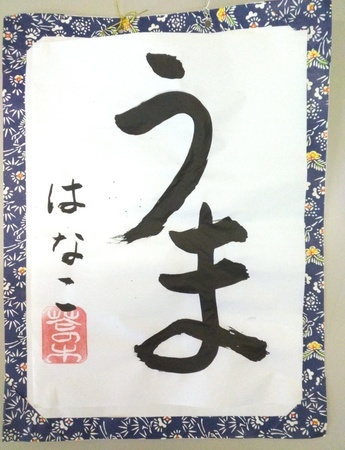 うま
はなこ